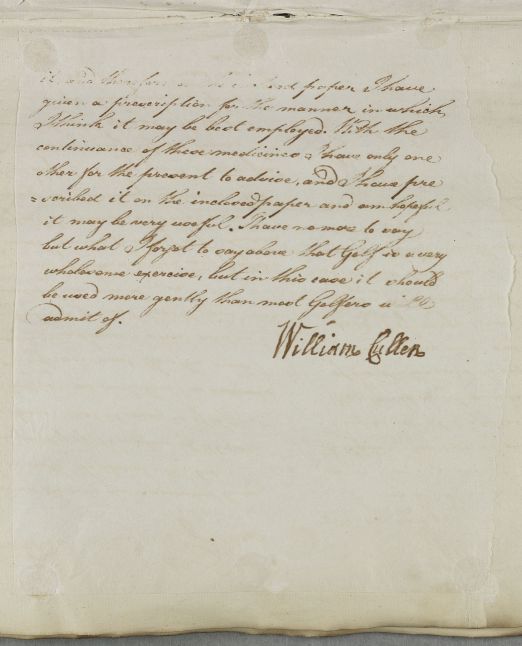 it and therefore on the inclosed paper I have
given a prescription for the manner in which
I think it may be best employed. With the
continuance of these medicines I have only one
other for the present to advise, and I have pre
=scribed it on the inclosed paper and am hopeful
it may be very useful. I have no more to say
but what I forgot to say above that Golf is a very
wholesome exercise, but in this case it should
be used more gently than most Golfers will
admit of.
William Cullen